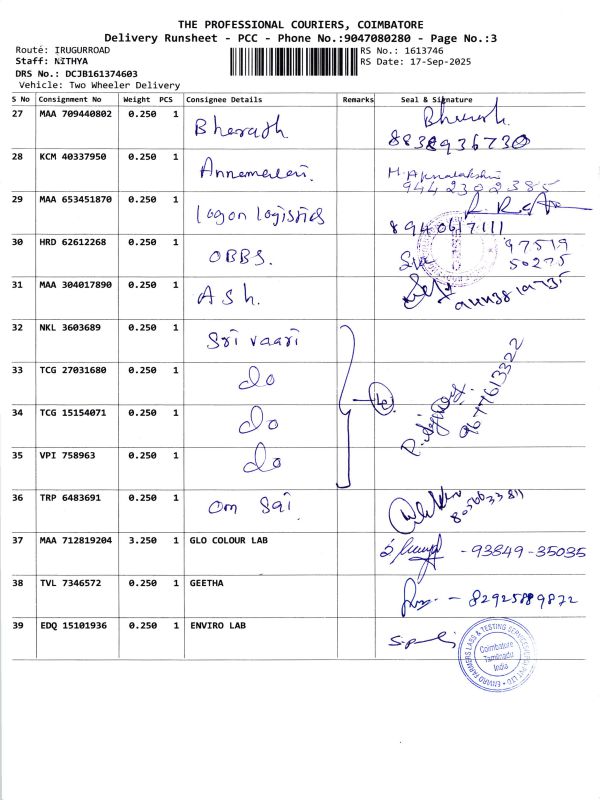 THE PROFESSIONAL COURIERS, COIMBATORE
Delivery Runsheet - PCC - Phone No.:9047080280 - Page No.:3
Route: IRUGURROAD
Staff: NITHYA
DRS No.: DCJB161374603
Vehicle: Two Wheeler Delivery
RS No.: 1613746
RS Date: 17-Sep-2025
S No Consignment No Weight PCS Consignee Details Remarks Seal & Signature
27 MAA 709440802 0.250 1 Bharath
8838936730
28 KCM 40337950 0.250 1
9442302385
29 MAA 653451870 0.250 1 Logon logistics
8940617111
30 HRD 62612268 0.250 1 OBBS.
97519
50275
31 MAA 304017890 0.250 1 Ash.
32 NKL 3603689 0.250 1 Sri vaari
33 TCG 27031680 0.250 1 do
34 TCG 15154071 0.250 1 do
9677613322
35 VPI 758963 0.250 1 do
36 TRP 6483691 0.250 1 om Sai
37 MAA 712819204 3.250 1 GLO COLOUR LAB
- 93849-35035
38 TVL 7346572 0.250 1 GEETHA
39 EDQ 15101936 0.250 1 ENVIRO LAB
Coimbatore
Tamilnadu
India